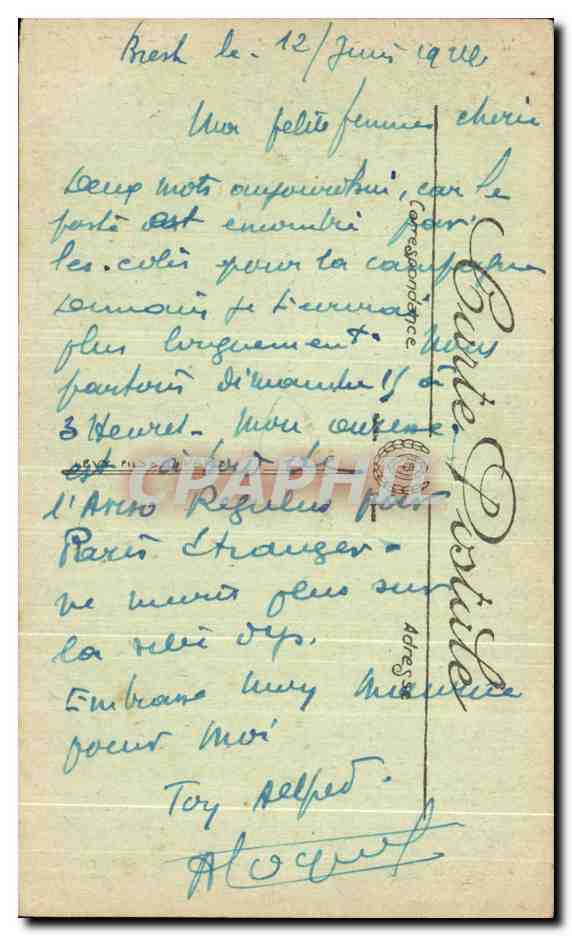 Brest le 12/Juin
Ma petite femme cherie
Deux mots aujourd'hui, car le
poste est encombré par
les colis pour la
Demain je t'ecrirai
plus longuement. Nous
partons dimanche 15 à
3 Heures. Mon adresse
est à bord de
l'Aviso Regulus par
Paris Etranger.
ne mets plus sur
la
Embrasse Maman
pour Moi
Ton Alfred.
Correspondance
Carte Postale
Adresse
CPAPHIL